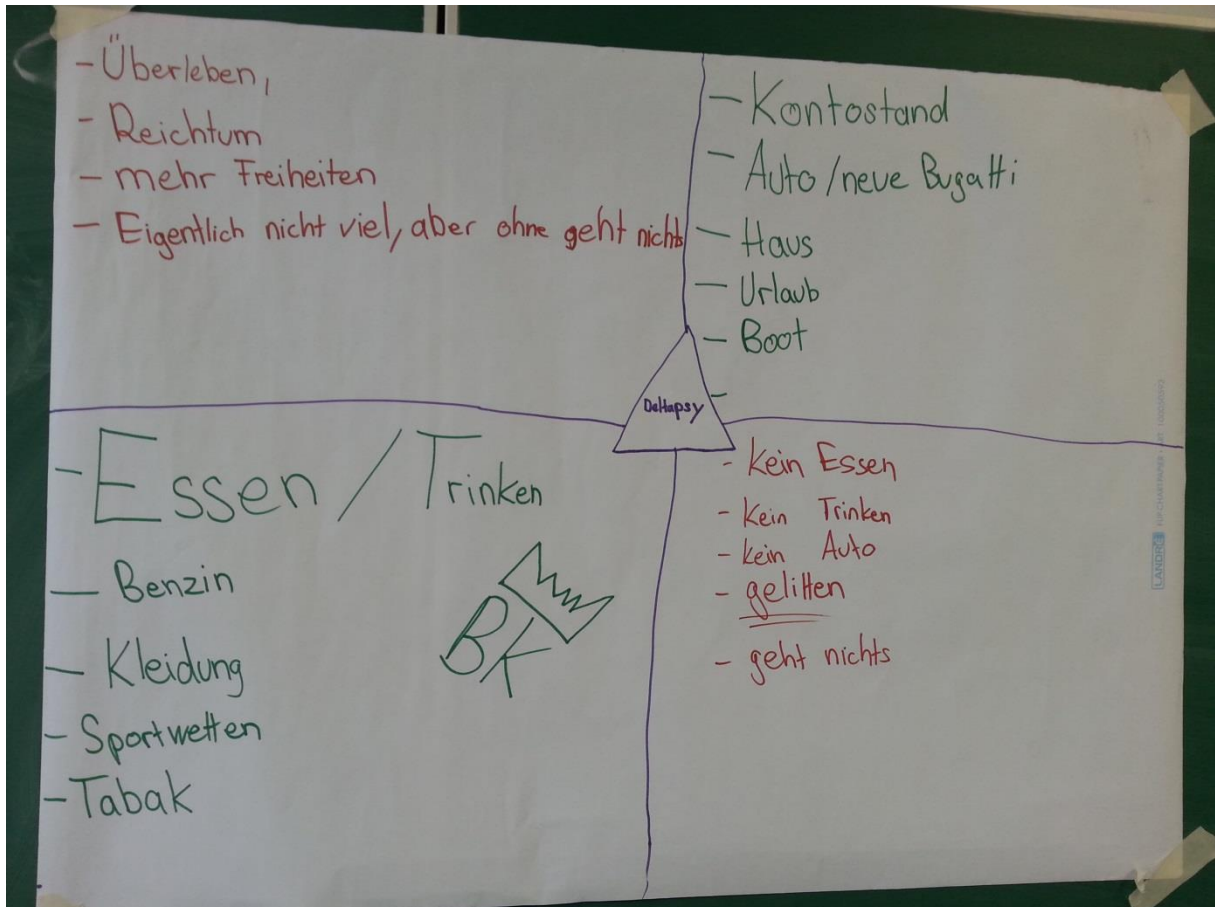 - Überleben,
- Reichtum
- mehr Freiheiten
- Eigentlich nicht viel, aber ohne geht nichts
- Kontostand
- Auto / neue Bugatti
- Haus
- Urlaub
- Boot
-
Deltapsy
- Essen / Trinken
- Benzin
- Kleidung
- Sportwetten
- Tabak
BK
- kein Essen
- kein Trinken
- kein Auto
- gelitten
- geht nichts